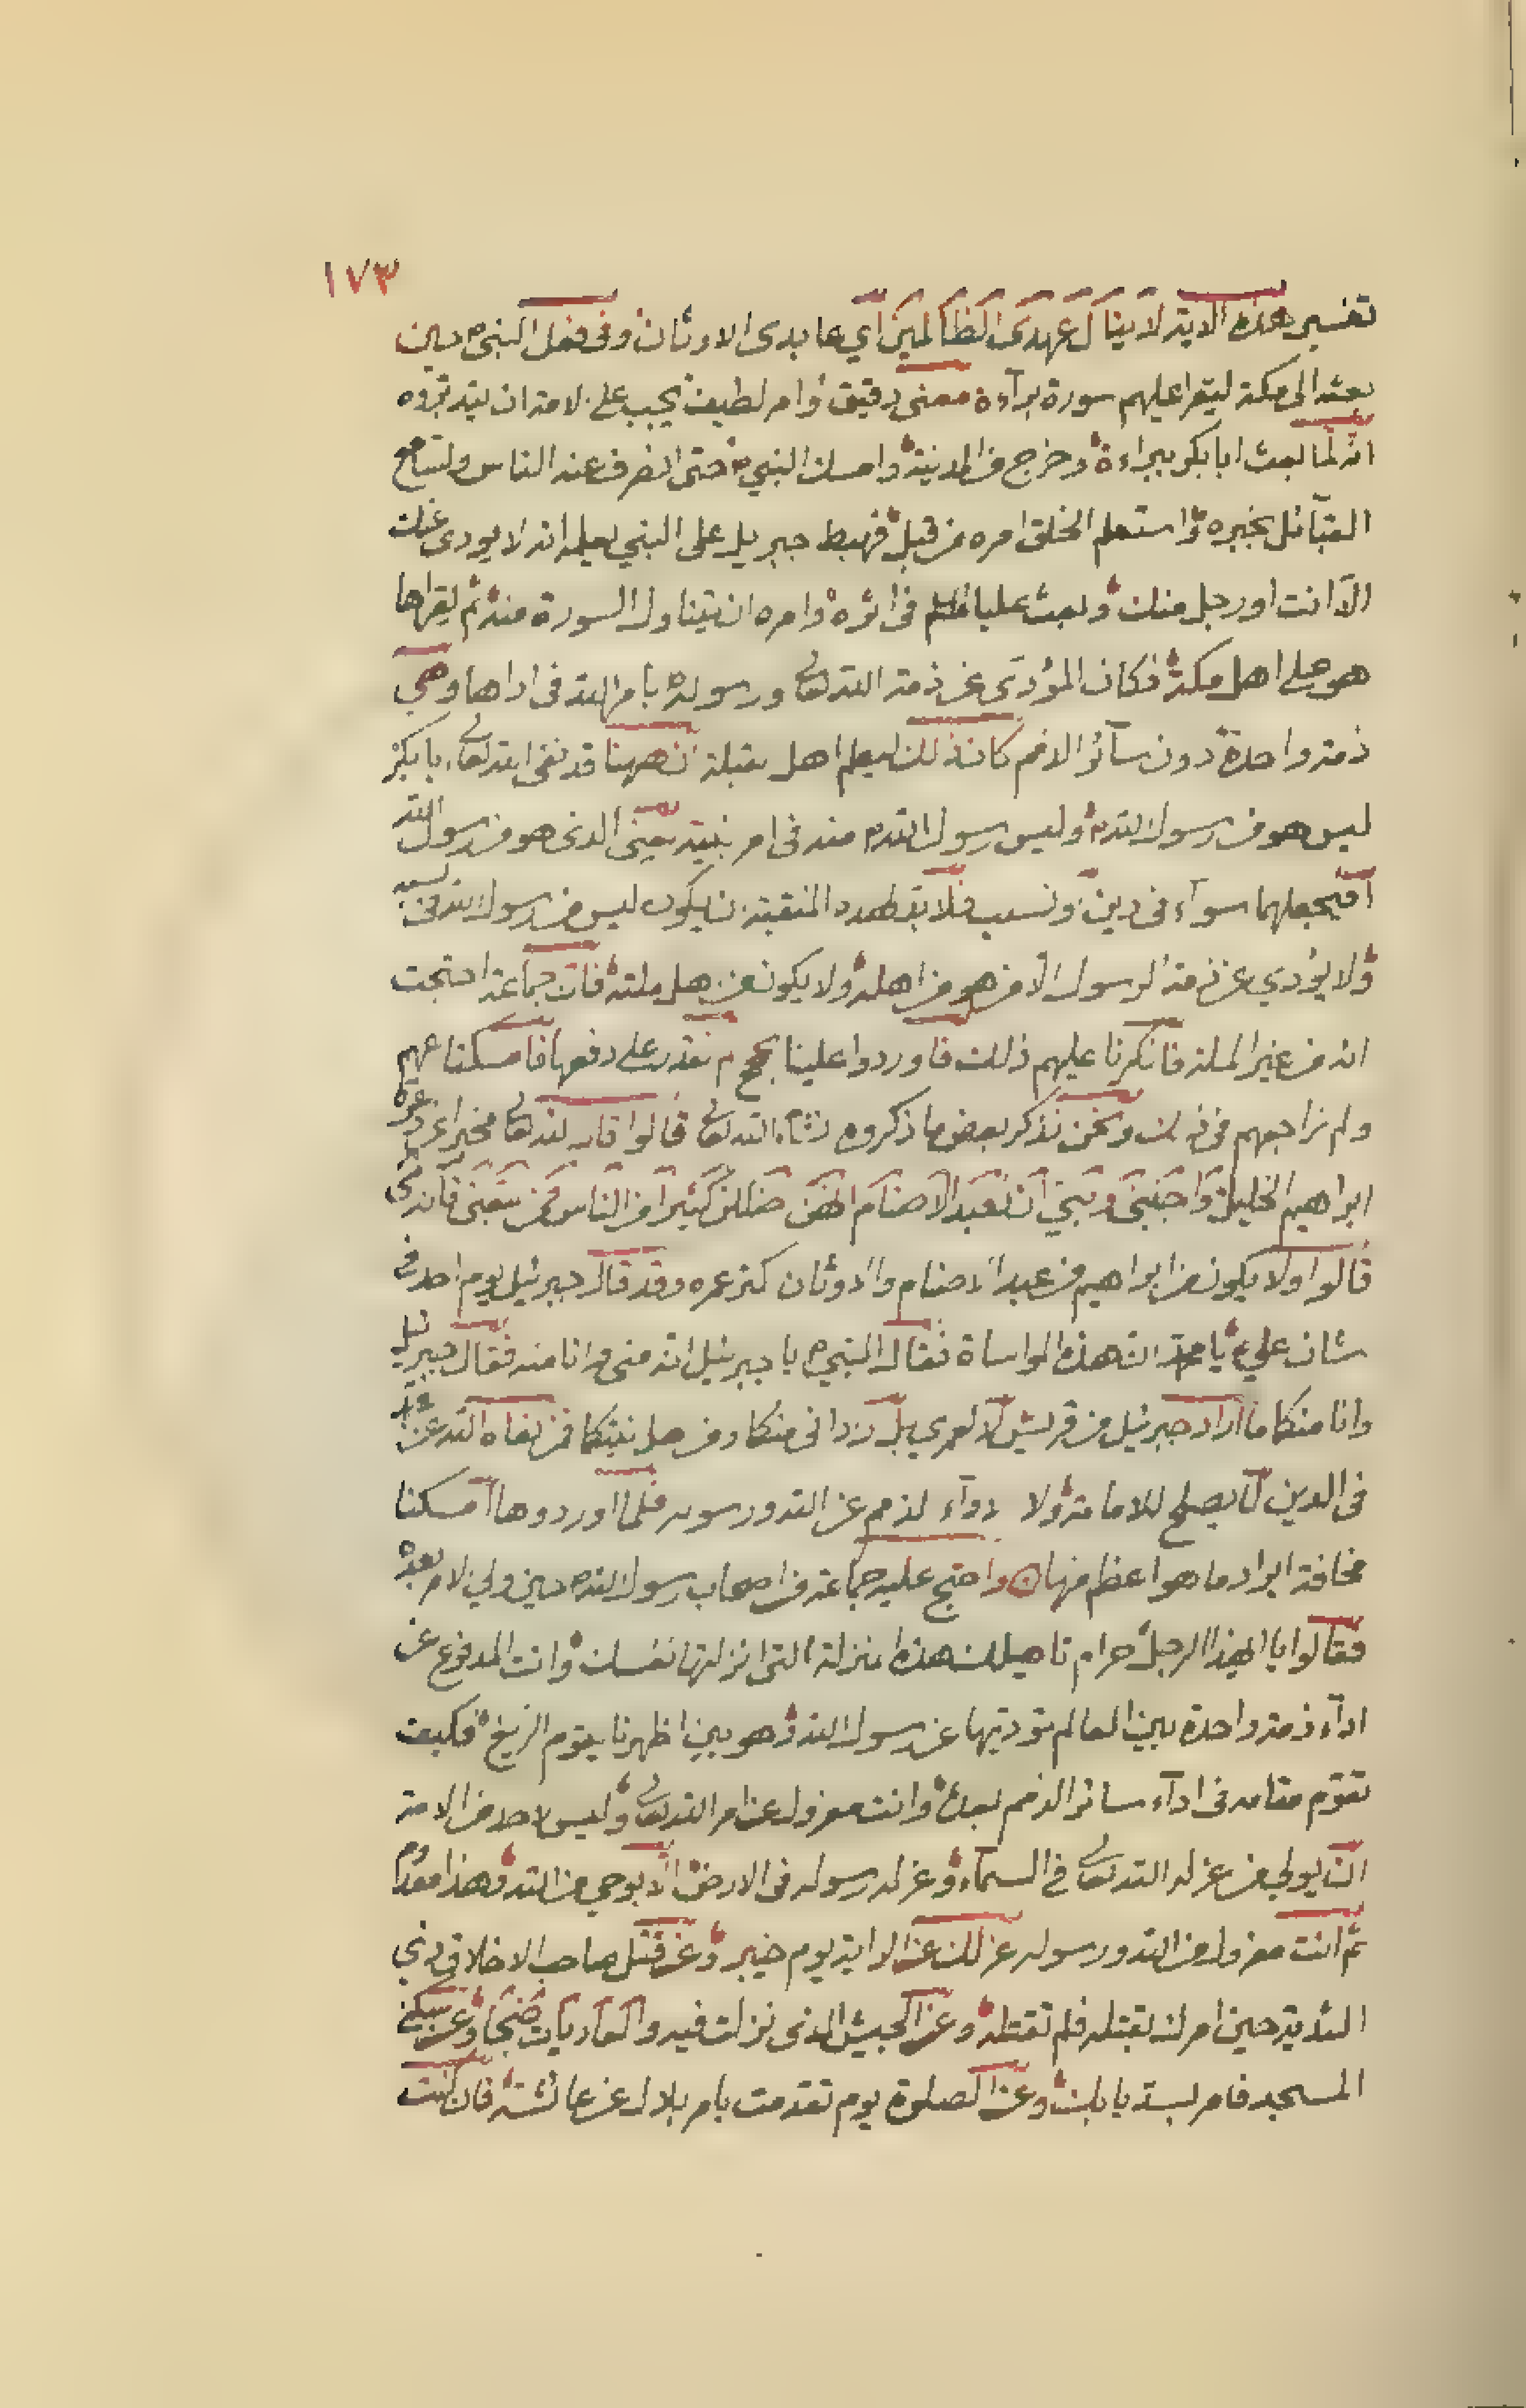 ١٧٣
تفسير هذه الاية لا ينال عهدي الظالمين اي عابدى الاوثان وفى فعل النبى م حين
بعثه الى مكة ليقرا عليهم سورة براءة معنى دقيق وامر لطيف يجب على الامة ان يتدبروه
انه لما بعث ابا بكر ببراءة وخرج من المدينة وامسك النبي م حتى انصرف عنه الناس وتسامع
القبائل بخبره واستعلم الخلق امره من قبل فهبط جبريل على النبي يعلمه انه لا يودى عنك
الا انت او رجل منك وبعث عليا في اثره وامره ان يتناول السورة منه ثم يقراها
هو على اهل مكة فكان المؤدى عن ذمة الله تعالى ورسوله بامر الله فى اداها وهي
ذمة واحدة دون سائر الذمم كان ذلك ليعلم اهل القبلة ان ههنا قد نفى الله تعالى ابا بكر
ليس هو من رسول الله م وليس رسول الله م منه فى امر يعنى الذى هو من رسول الله
افيجعلهما سواء فى دين ونسب فلا المنقبة ان يكون ليس من رسول الله فى نسبه
ولا يؤدي عن ذمة الرسول الا من هو من اهله ولا يكون من اهل ملته فان جماعة احتجت
انه من غير الملة فانكرنا عليهم ذلك فاوردوا علينا بحجج لم نقدر على دفعها فامسكنا عنهم
ولم نراجعهم فى ذلك ونحن نذكر بعض ما ذكروه ان شاء الله تعالى قالوا قال الله تعالى مخبرا عن
ابراهيم الخليل واجنبني وبني ان نعبد الاصنام انهن اضللن كثيرا من الناس فمن تبعني فانه منى
قالوا ولا يكون من ابراهيم من عبد الاصنام والاوثان اكثر عمره وقد قال جبرئيل يوم احد فى
شان علي ع يا محمد ان هذه المواساة فقال النبي م يا جبرئيل انه منى وانا منه فقال جبرئيل
وانا منكما ما اراد جبرئيل من قريش لا لعمري بل اراد انى منكما ومن اهل بيتكما فمن نفاه الله عن
فى الدين لا يصلح للامامة ولا اداء الذمم عن الله ورسوله فلما اوردوها امسكنا
مخافة ايراد ما هو اعظم منها واحتج عليه جماعة من اصحاب رسول الله م حين ولي الامر بعده
فقالوا يا ايهذا الرجل حرام تاهيلك هذه المنزلة التى انزلتها نفسك وانت المدفوع عن
اداء ذمة واحدة بين العالم تؤديها عن رسول الله وهو بين اظهرنا يقوم الزيغ فكيف
تقوم مقامه فى اداء سائر الذمم بعده وانت معزول عن امر الله تعالى وليس لاحد من الامة
ان يولي من عزله الله تعالى في السماء وعزله رسوله فى الارض الا بوحي من الله وهذا معدوم
ثم انت معزول من الله ورسوله عزلك عن الراية يوم خيبر وعن قتل صاحب الاخلاق ذي
الثدية حين امرك بقتله فلم تقتله وعن الجيش الذى نزلت فيه والعاديات ضبحا وعن سكنى
المسجد فامر بسد بابك وعن الصلوة يوم تقدمت بامر بلال عن عائشة فان كنت